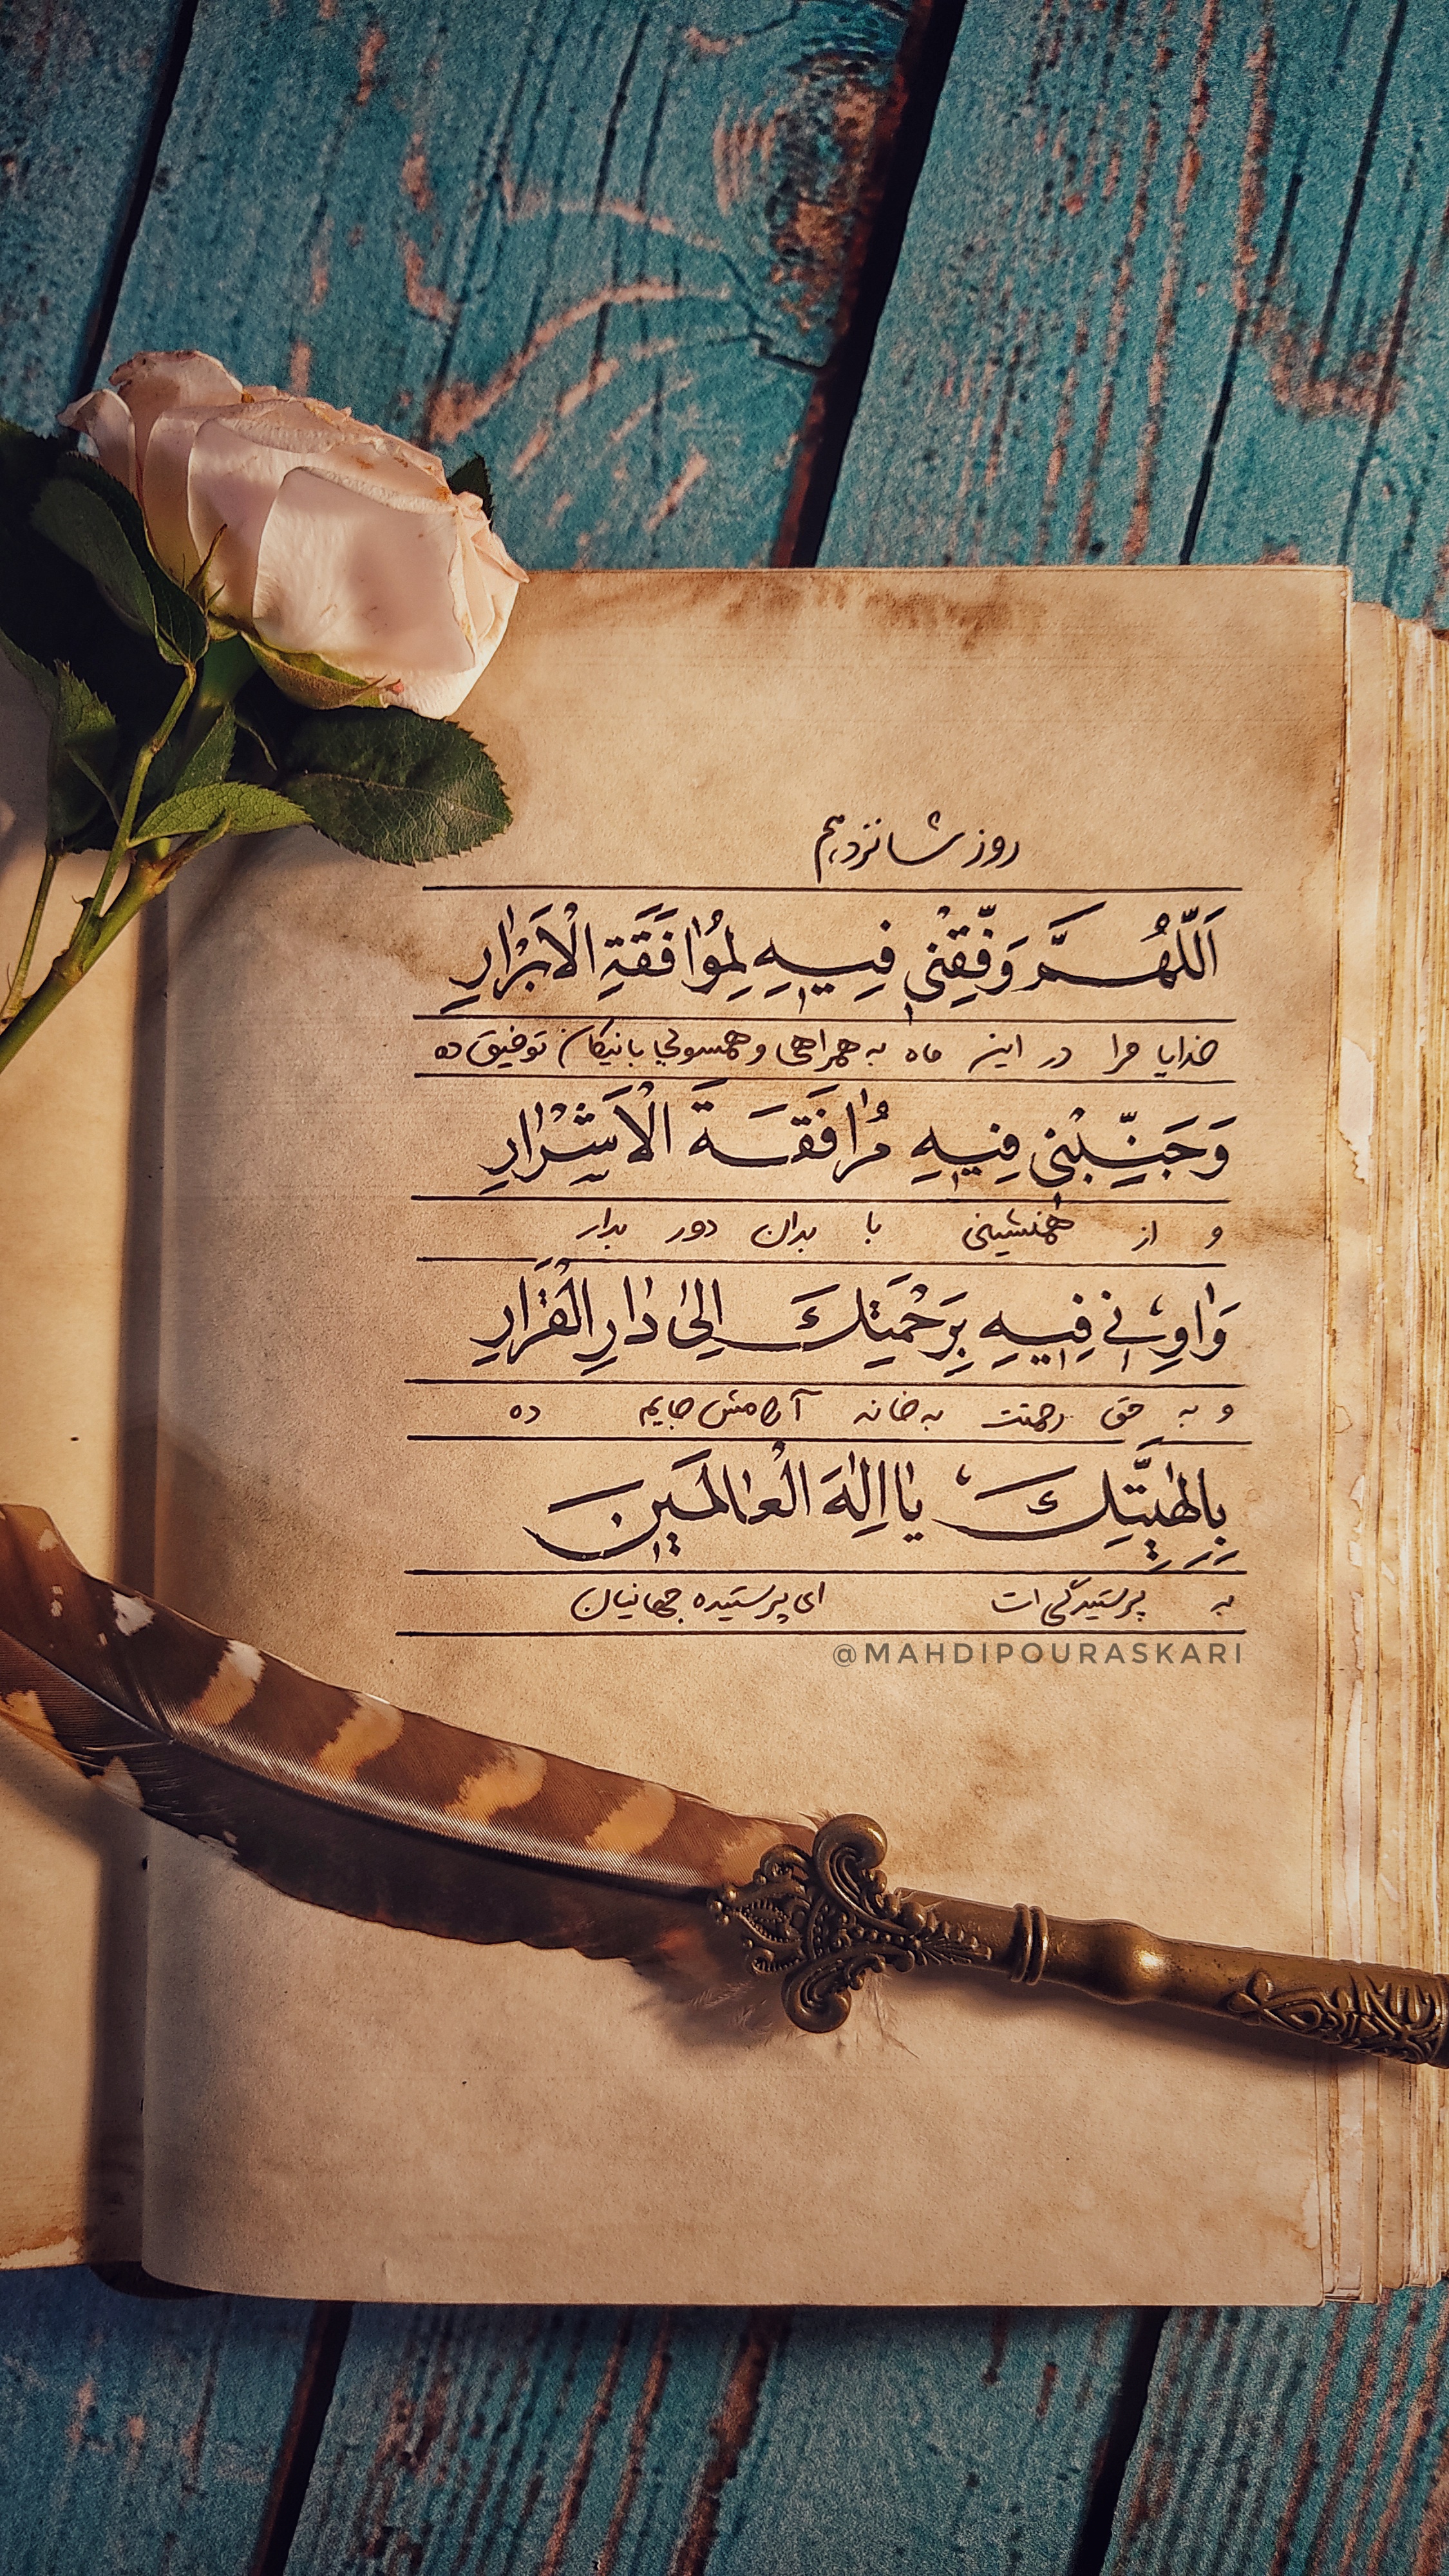 روز شانزدهم
اَللّهُمَّ وَفِّقْنی فیهِ لِمُوٰافَقَةِ الْاَبْرٰارِ
خدایا مرا در این ماه به همراهی و همسوئی با نیکان توفیق ده
وَجَنِّبْنی فیهِ مُرٰافَقَةَ الْاَشْرٰارِ
و از همنشینی با بدان دور بدار
وَاٰوِنی فیهِ بِرَحْمَتِكَ اِلیٰ دٰارِ الْقَرٰارِ
و به حق رحمتت به خانه آرامش جایم ده
بِاِلٰهِیَّتِكَ یٰا اِلٰهَ الْعٰالَمینَ
به پرستیدگی ات ای پرستیده جهانیان
@MAHDIPOURASKARI